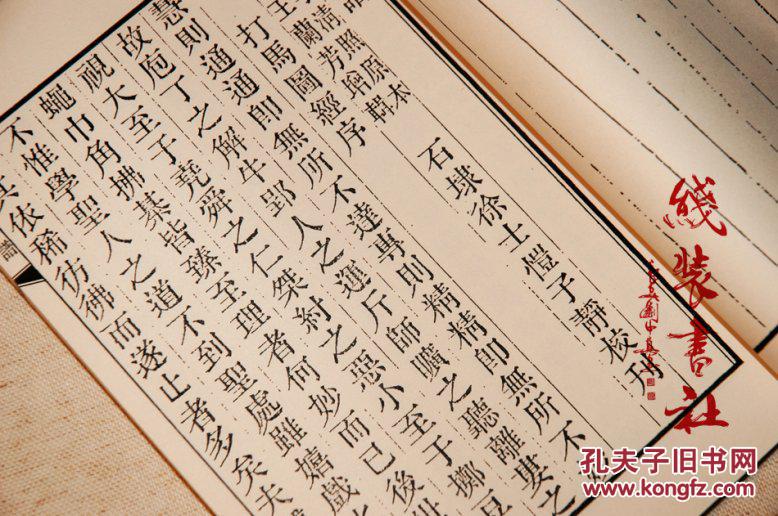 清照原本
蘭芳
石埭徐士愷子靜校刊
打馬圖經序
慧則通通即無所不達專則精精即無所不
故庖丁之解牛郢人之運斤師曠之聽離婁之
視大至于堯舜之仁桀紂之惡小至于擲豆
蠅巾角拂棊皆臻至理者何妙而已後世
不惟學聖人之道不到聖處雖嬉戲
其依稀彷彿而遂止者多矣夫
譜
线装書社
孔夫子旧书网
www.kongfz.com